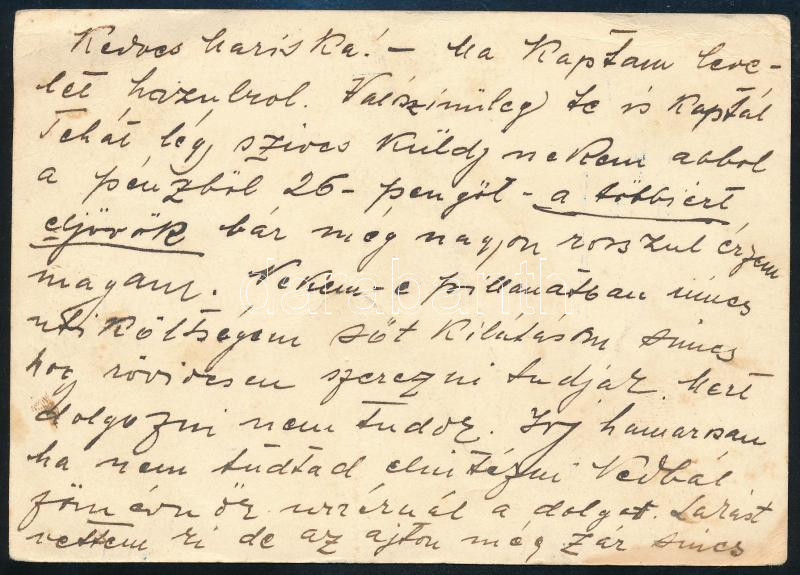 Kedves Mariska! – Ma kaptam leve-
let hazulrol. Valószinüleg te is kaptál
Tehát légy szives küldj nekem abbol
a pénzböl 26 – pengöt – a többiért
eljövök bár még nagyon rosszul érzem
magam. Nekem – e pillanatban nincs
uti költségem söt kilatasom sincs
hogy rövidesen szerezni tudjak. Mert
dolgozni nem tudok. Irj hamarosan
ha nem tudtad elintézni
a dolgot. Lakást
vettem ki de az ajton még zár sincs
darabanth